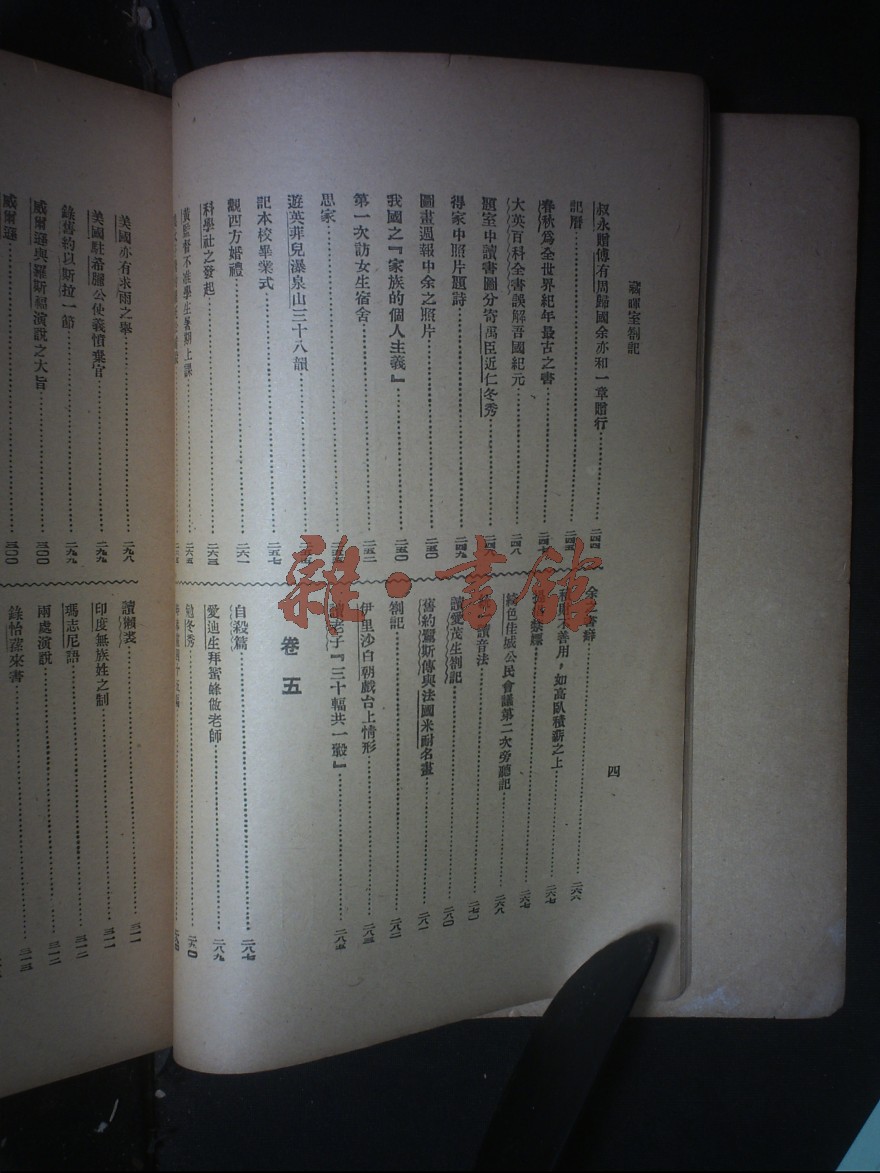 藏暉室劄記
四
叔永贈傅有周歸國余亦和一章贈行……二四四
記曆……二四五
春秋爲全世界紀年最古之書……二四七
大英百科全書誤解吾國紀元……二四八
題室中讀書圖分寄禹臣近仁冬秀
得家中照片題詩……二四九
圖畫週報中余之照片……二五〇
我國之『家族的個人主義』……二五〇
第一次訪女生宿舍……二五二
思家
遊英菲兒瀑泉山三十八韻
記本校畢業式……二五七
觀西方婚禮……二六一
科學社之發起……二六三
黃監督不准學生暑期上課……二六五
余
……二六六
善用，如高臥積薪之上……二六七
……二六七
綺色佳城公民會議第二次旁聽記……二六八
讀音法
讀愛茂生劄記……二八〇
舊約鷺斯傳與法國米耐名畫……二八一
劄記……二八二
伊里沙白朝戲台上情形……二八三
讀老子『三十輻共一轂』……二八五
卷五
自殺篇……二八七
愛迪生拜蜜蜂做老師……二八九
勉冬秀……二九〇
美國亦有求雨之舉……二九八
美國駐希臘公使義憤棄官……二九九
錄舊約以斯拉一節……二九九
威爾遜與羅斯福演說之大旨……三〇〇
威爾遜……三〇〇
讀獺裘……三一一
印度無族姓之制……三一一
瑪志尼語……三一二
兩處演說……三一二
錄怡蓀來書……三一三
雜·書館